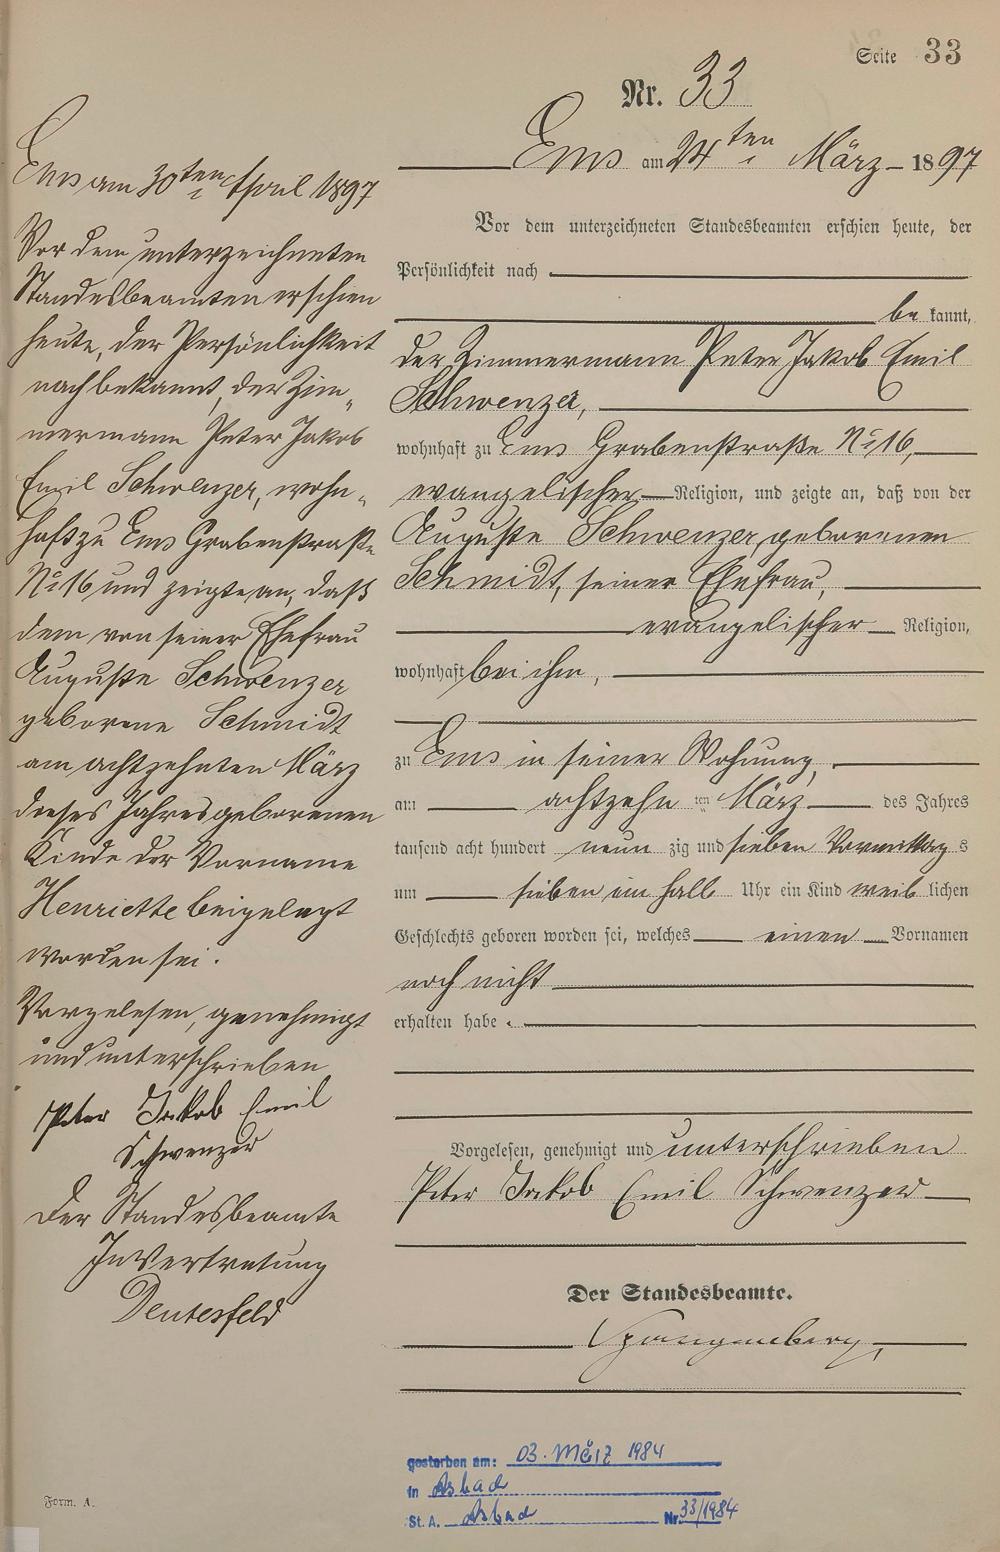 Seite 33
Nr. 33
Ems am 24ten März 1897
Vor dem unterzeichneten Standesbeamten erschien heute, der
Persönlichkeit nach
be kannt,
der Zimmermann Peter Jakob Emil
Schwenzer,
wohnhaft zu Ems Grabenstraße No 16,
evangelischer Religion, und zeigte an, daß von der
Auguste Schwenzer, geborenen
Schmidt, seiner Ehefrau,
evangelischer Religion,
wohnhaft bei ihm,
zu Ems in seiner Wohnung,
am achtzehn ten März des Jahres
tausend acht hundert neun zig und sieben Vormittag s
um sieben ein halb Uhr ein Kind weib lichen
Geschlechts geboren worden sei, welches einen Vornamen
noch nicht
erhalten habe.
Vorgelesen, genehmigt und unterschrieben
Peter Jakob Emil Schwenzer
Der Standesbeamte.
Spangenberg
Ems am 30ten April 1897
Vor dem unterzeichneten
Standesbeamten erschien
heute, der Persönlichkeit
nach bekannt, der Zim„
mermann Peter Jakob
Emil Schwenzer, wohn„
haft zu Ems Grabenstraße
No 16 und zeigte an, daß
dem von seiner Ehefrau
Auguste Schwenzer
geborene Schmidt
am achtzehnten März
dieses Jahres geborenen
Kinde der Vorname
Henriette beigelegt
worden sei.
Vorgelesen, genehmigt
und unterschrieben
Peter Jakob Emil
Schwenzer
Der Standesbeamte
In Vertretung
gestorben am: 03. März 1984
in Asbach
St. A. Asbach Nr. 33/1984
Form. A.